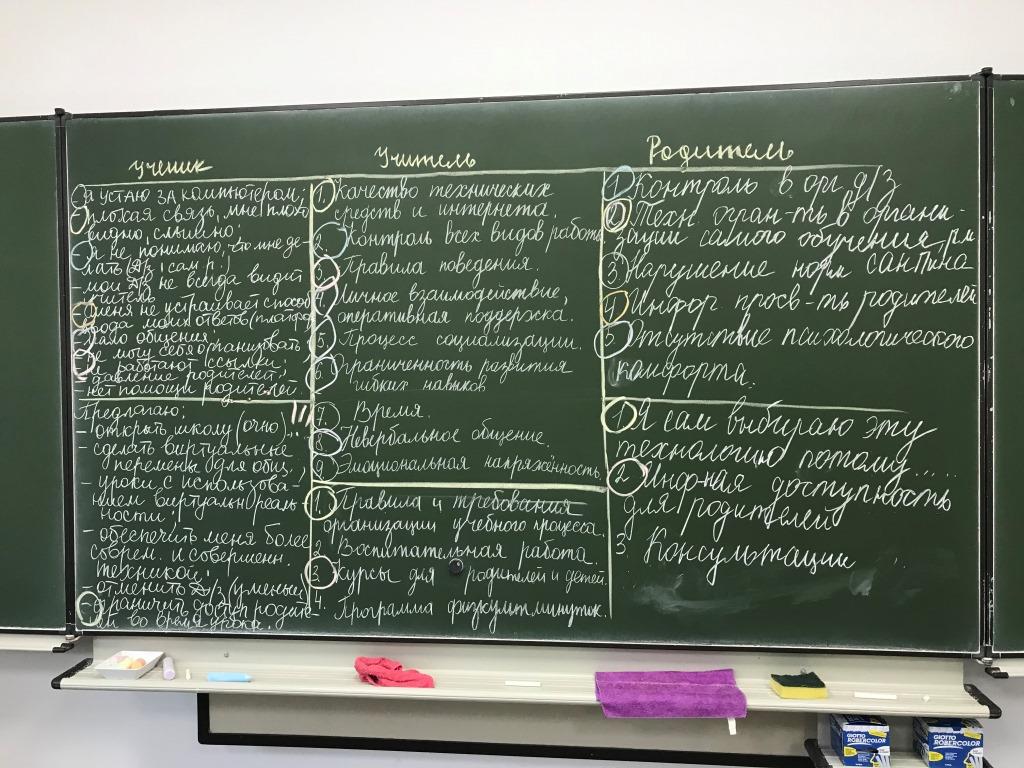 ученик
- я устаю за компьютером;
- плохая связь, мне плохо
видно, слышно;
- я не понимаю, что мне де-
лать (д/з, сам р.)
- мои д/з не всегда видит
учитель
- меня не устраивает способ
моих ответов
- мало общения
- не могу себя организовать
- не работают ссылки
- давление родителей,
- нет помощи родителей
Предлагаю:
- открыть школу (очно)...
- сделать виртуальные
перемены для общ.,
- уроки с использова-
нием виртуальн реаль
ности;
- обеспечить меня более
соврем. и совершенн.
техникой;
- отменить д/з (уменьш
- ограничить доступ родите-
лей во время урока.
Учитель
1. Качество технических
средств и интернета.
2. Контроль всех видов работ
3. Правила поведения.
4. Личное взаимодействие,
оперативная поддержка.
5. Процесс социализации.
6. Ограниченность развития
гибких навыков
7. Время.
8. Невербальное общение.
9. Эмоциональная напряжённость
1. Правила и требования
организации учебного процесса.
2. Воспитательная работа.
3. Курсы для родителей и детей.
4. Программа физкультминуток.
Родитель
1. Контроль в орг. д/з
2. Техн. огран-ть в органи-
зации самого обучения
3. Нарушение норм санпина
4. Инфор просв-ть родителей
5. Отсутствие психологического
комфорта.
1. Я сам выбираю эту
технологию потому.....
2. Инф-ная доступность
для родителей
3. Консультации
GIOTTO
ROBERCOLOR
GIOTTO
ROBERCOLOR